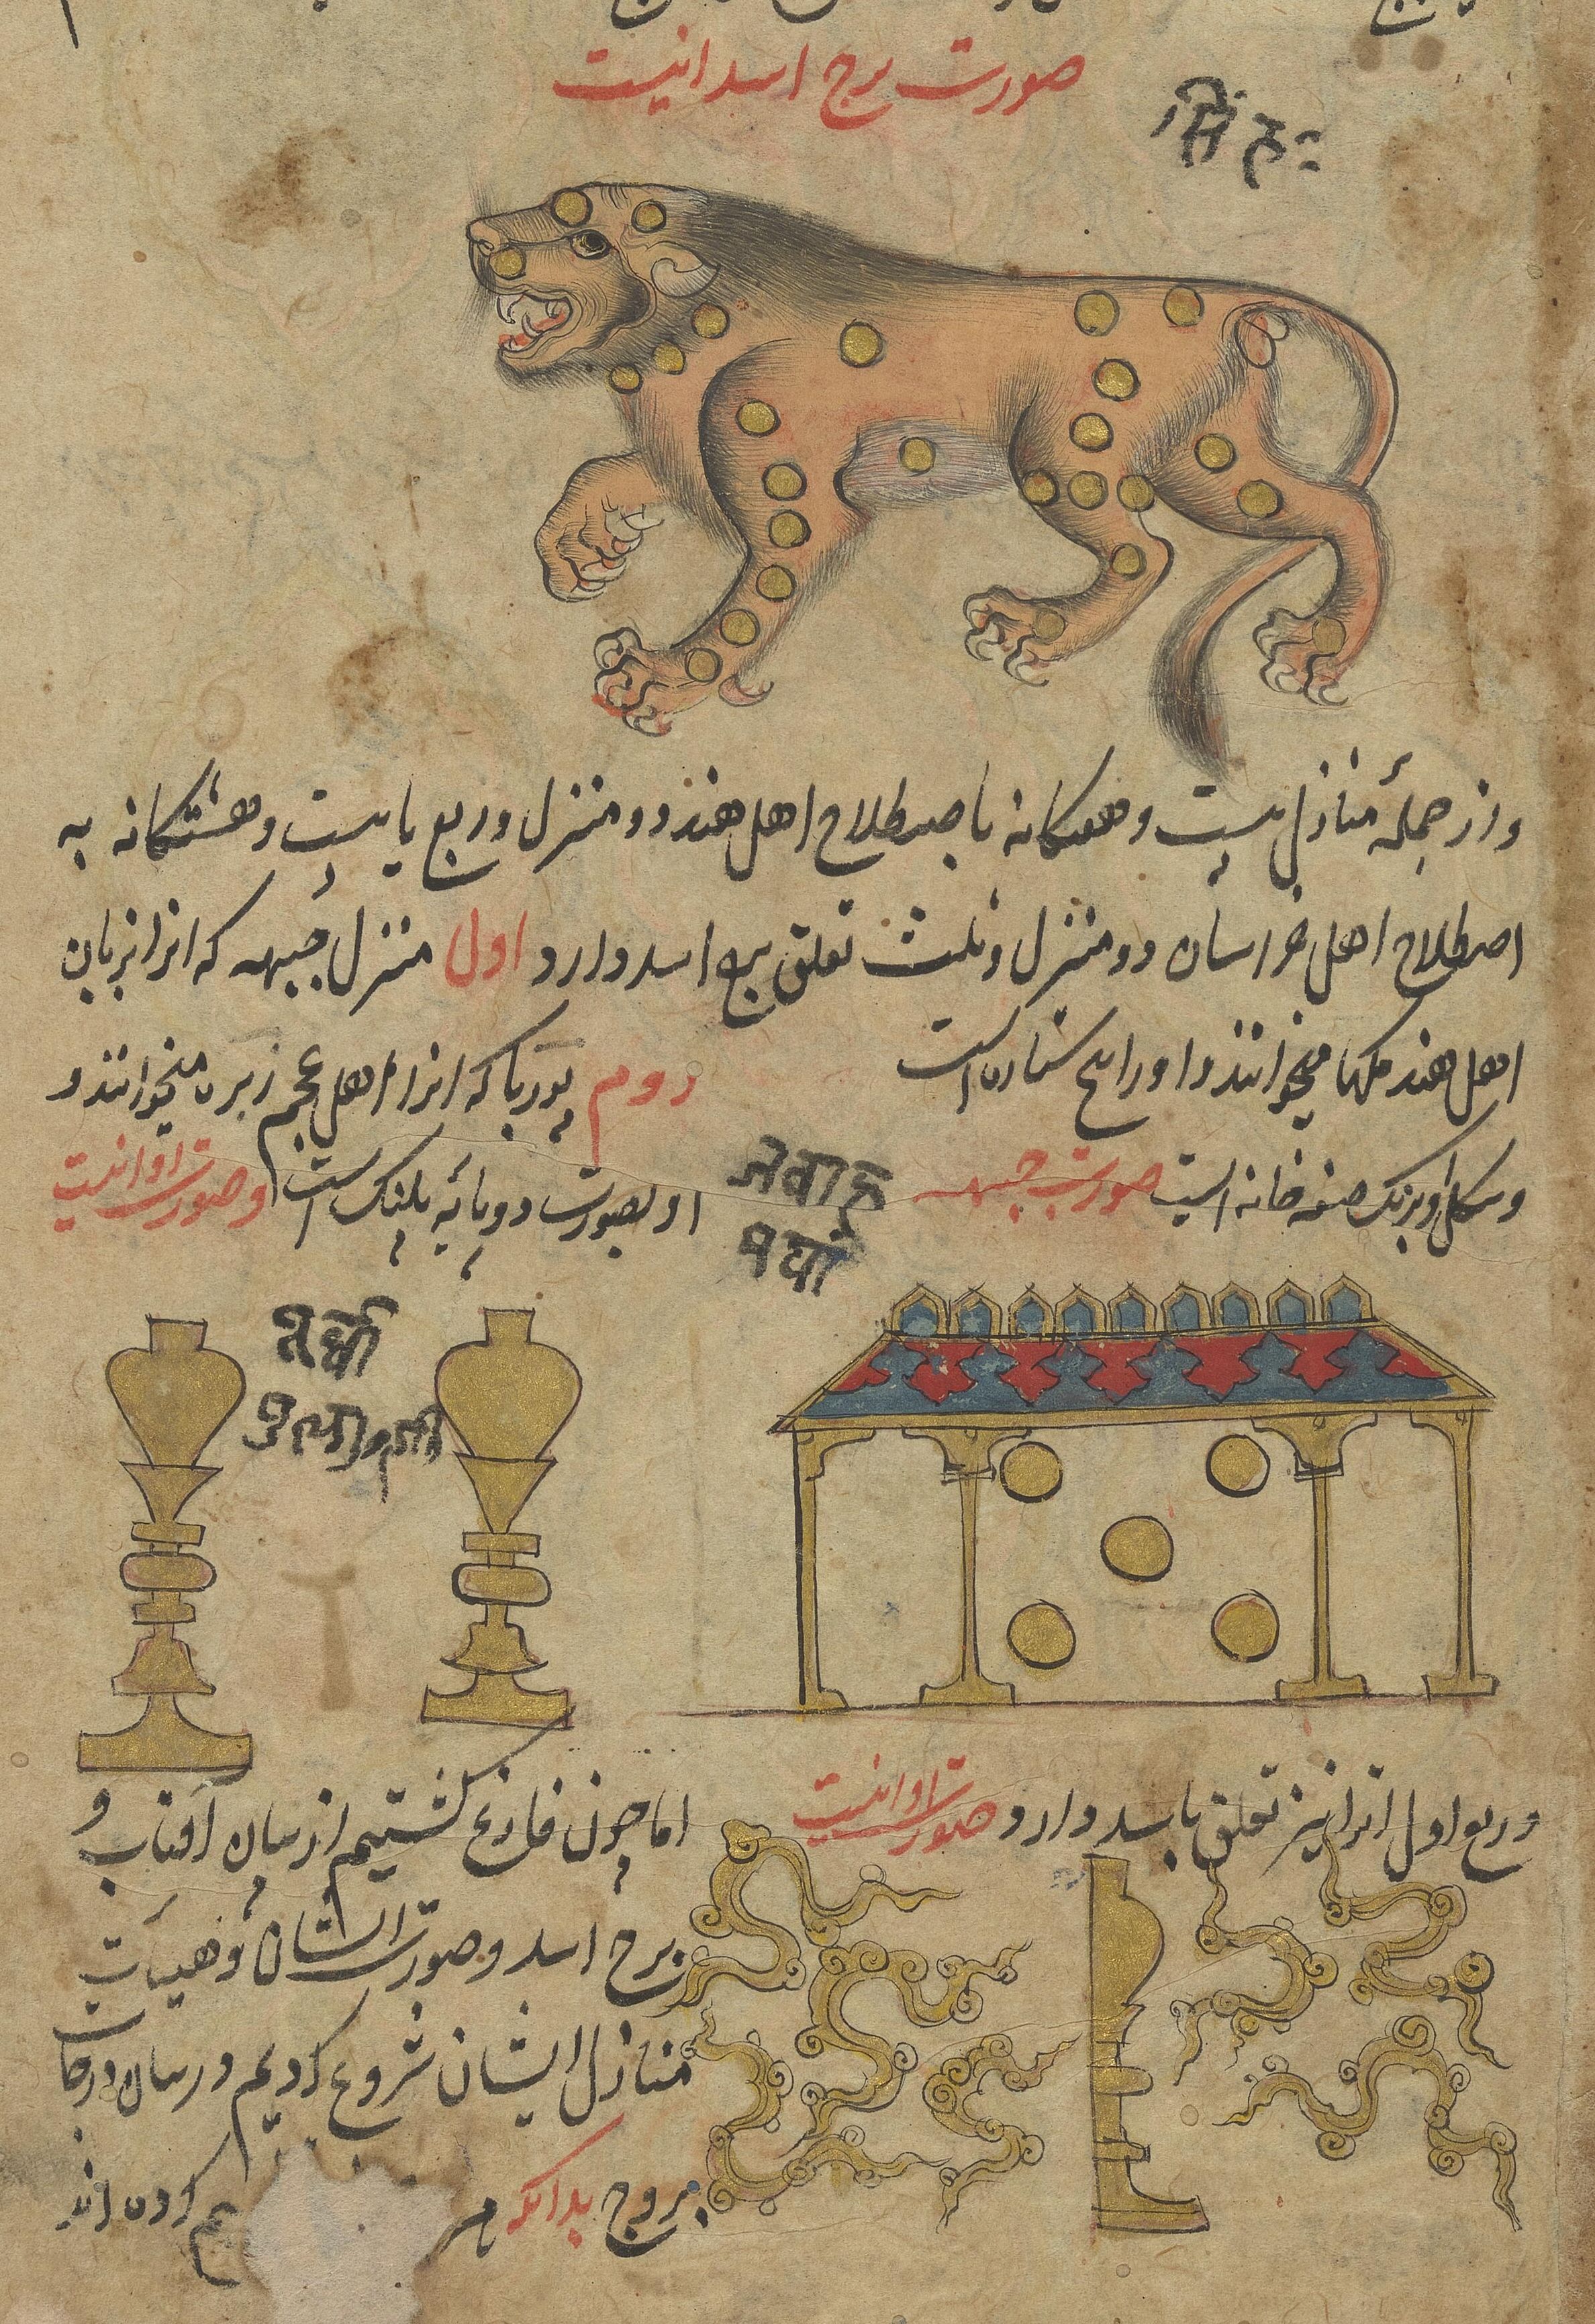 صورت برج اسد اینست
सिंहः
و از جملهٔ منازل بیست و هفتکانه باصطلاح اهل هند دو منزل و ربع یا بیست و هشتکانه به
اصطلاح اهل خراسان دو منزل و ثلث تعلق ببرج اسد دارد اول منزل جبهه که انرا بزبان
اهل هند مکها میخوانند و او را پنج ستاره است
وشکل او بر صفه خانه است صورت جبهه
دوم پوربا که انرا اهل عجم زبره میخوانند و
او بصورت دو پایهٔ پلنک است و صورت او اینست
मघा
و ربع اول انرا نیز تعلق باسد دارد و صورت او اینست
اما چون فارغ کشتیم از بیان آفتاب و
برج اسد و صورت ایشان و هیات
منازل ایشان شروع کردیم در بیان درجات
بروج بدانکه هر
کرده اند